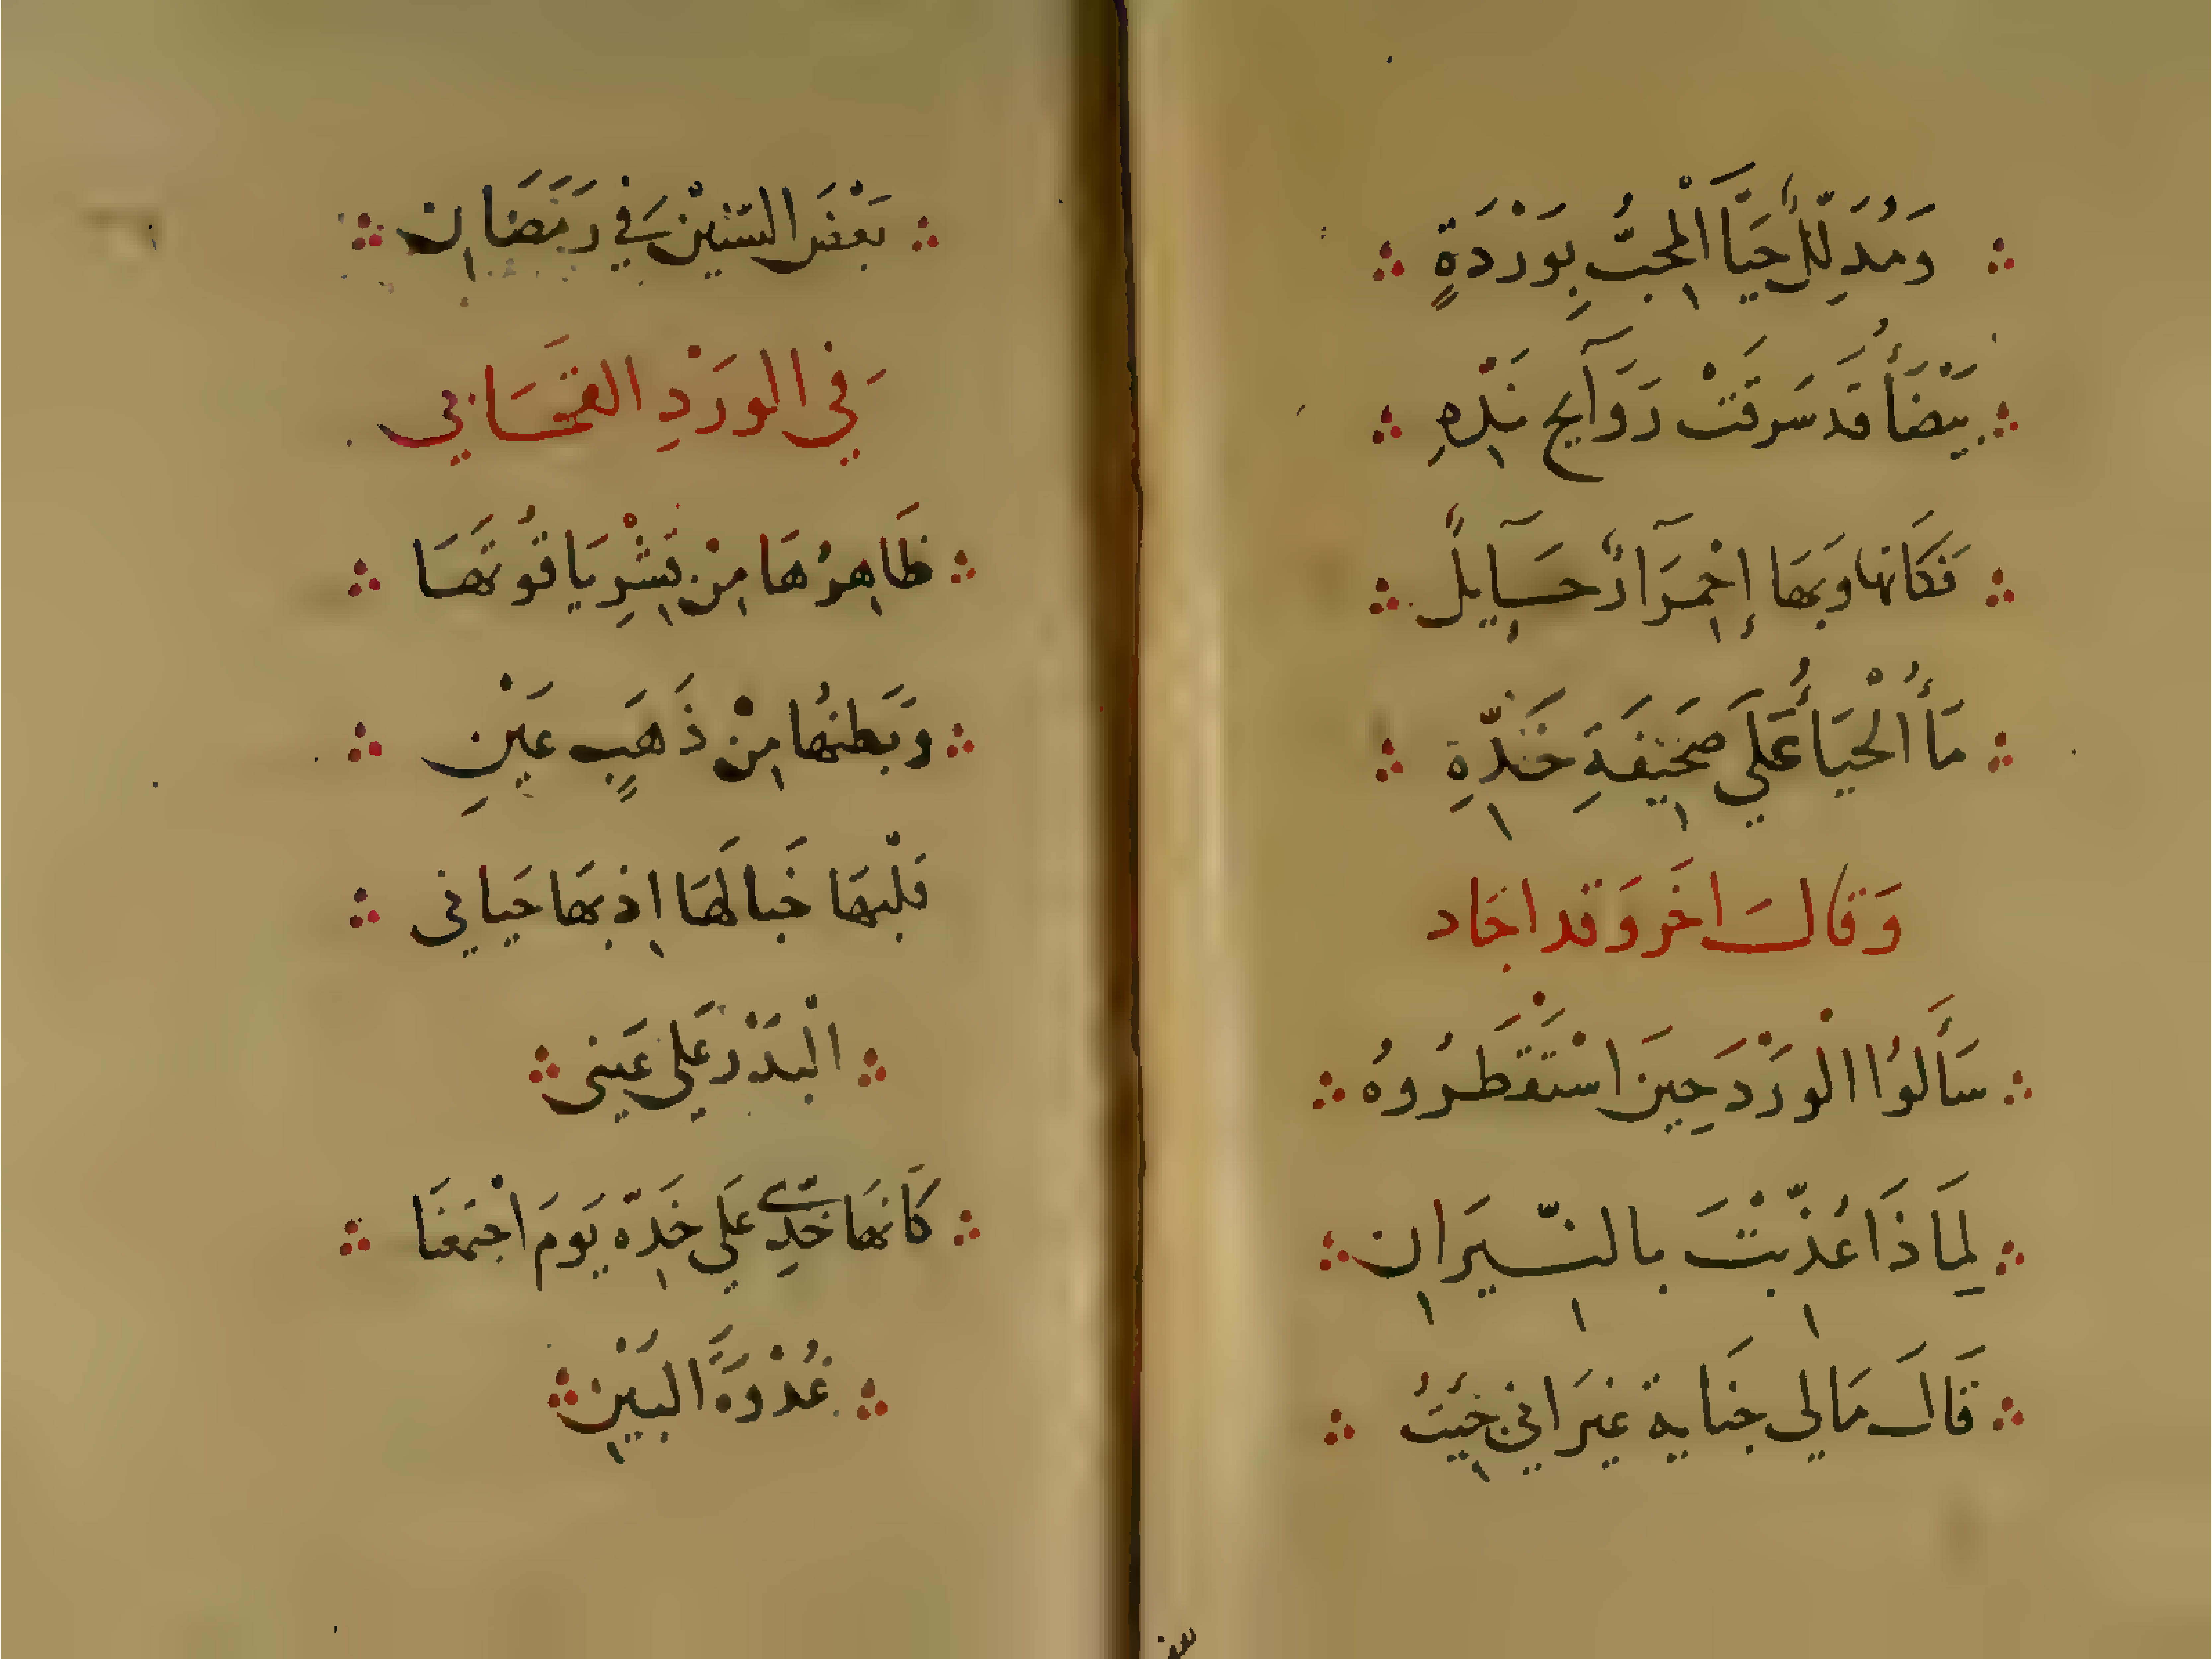 وَمُدَلِّلٍ حَيَّا الْمُحِبُّ بِوَرْدَةٍ
بَيْضَأُ قَد سَرَقَتْ رَوَآيح نَدِّهِ
فَكَانها وَبهَا إِحْمرَارٌ حسَآيلً
مَأُ الْحيَأُ عَلَي صَحَيفَةِ خَدِّهِ
وَقالَ اخَر وَقد اجَاد
سَأَلوُا الْورْدَ حِينَ اسْتَقْطَرُوهُ
لِمَاذَا عُذِّبْتَ بالنّيرَان
قَالَ مَالي جنَاية غيرَ اني جيتُ
بَعْضَ السّنينْ في رَمَضَان
في الورَدِ القحَابي
ظَاهِرُهَا مِنْ قِشْرِ يَاقُوتهَا
وَبَطنهُا مِنْ ذَهَبٍ عَيْنِ
قَلْبهَا خَبالهَا اذ بهَا حَيا في
الْبَدْر عَلي عَيني
كَانهَا خَدِّي عَلي خَدِّه يَومَ اجْتمَعْنَا
غُدْوةَ البَيْن